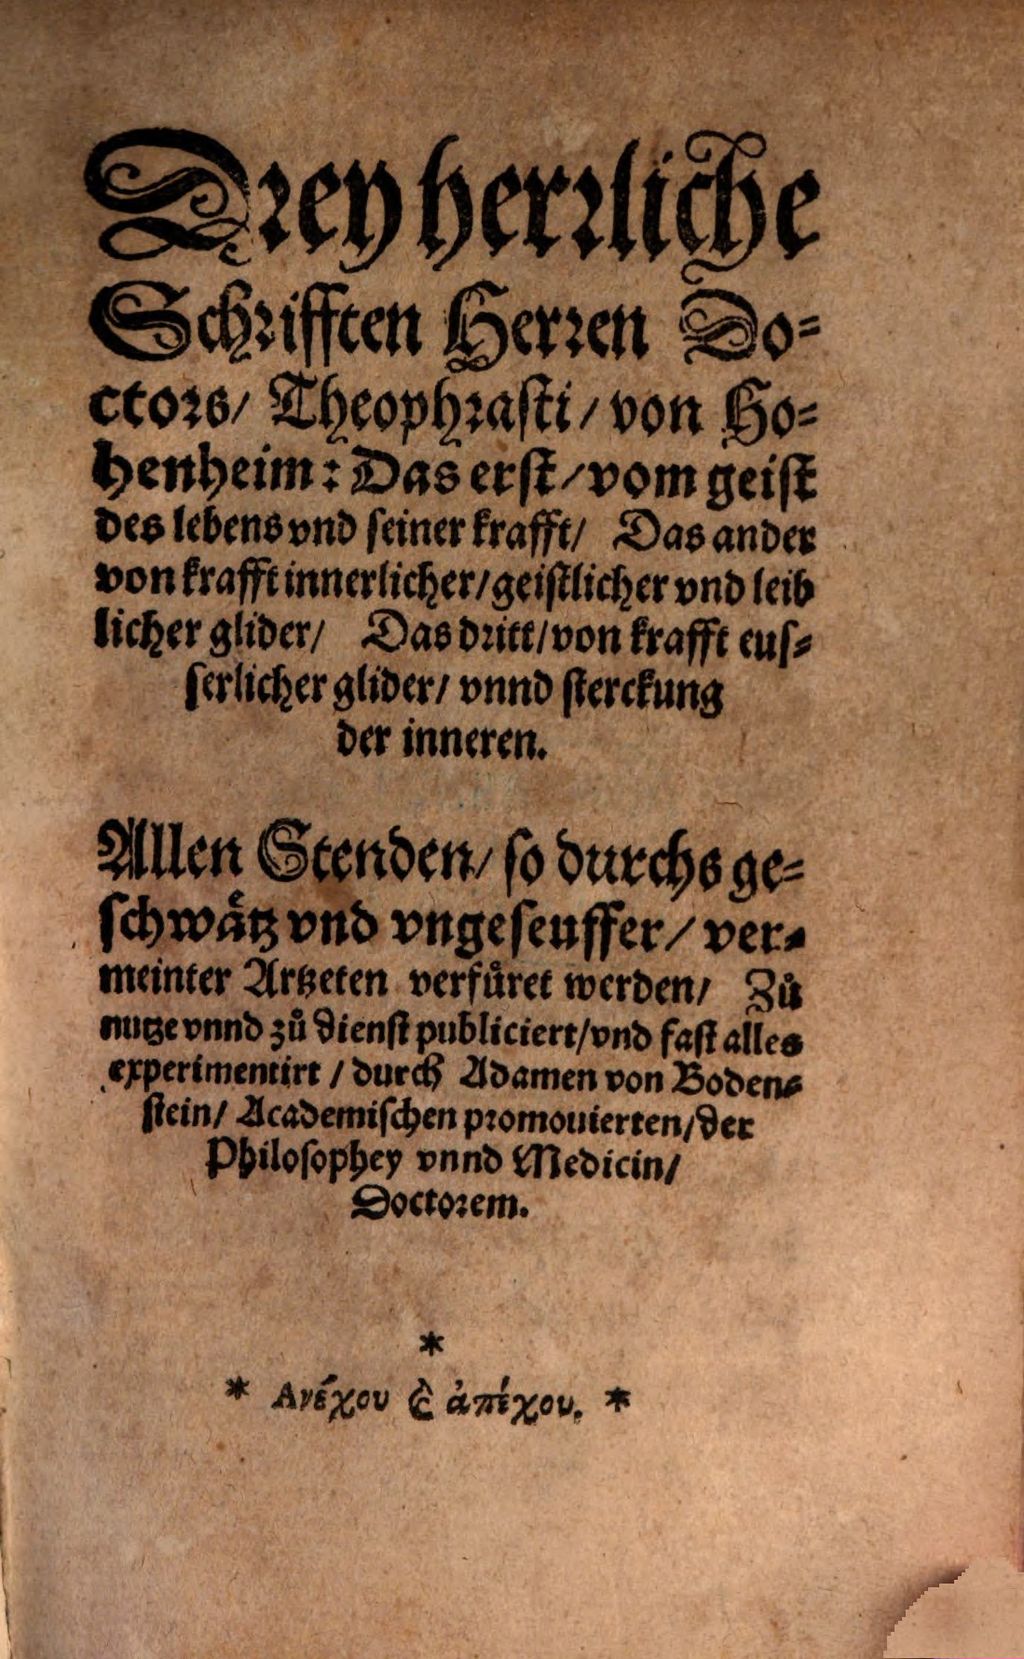 Drey herrliche
Schrifften Herren Do-
ctors/ Theophrasti/ von Ho-
henheim: Das erst/ vom geist
des lebens vnd seiner krafft/ Das ander
von krafft innerlicher/ geistlicher vnd leib
licher glider/ Das dritt/ von krafft eus-
serlicher glider/ vnnd sterckung
der inneren.
Allen Stenden/ so durchs ge-
schwåtz vnd vngeseuffer/ ver-
meinter Artzeten verfůret werden/ Zů
nutze vnnd zů dienst publiciert/ vnd fast alles
experimentirt / durch Adamen von Boden-
stein/ Academischen promouierten/ der
Philosophey vnnd Medicin/
Doctorem.
*
* Ανέχου & ἀπέχου. *